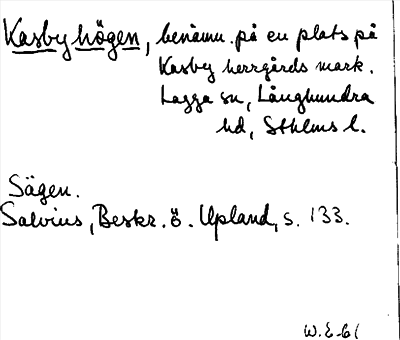 Kasby högen, benämn. på en plats på
Kasby herrgårds mark.
Lagga sn, Långhundra
hd, Sthlms l.
Sägen.
Salvius, Beskr. ö. Upland, s. 133.
W.E-61